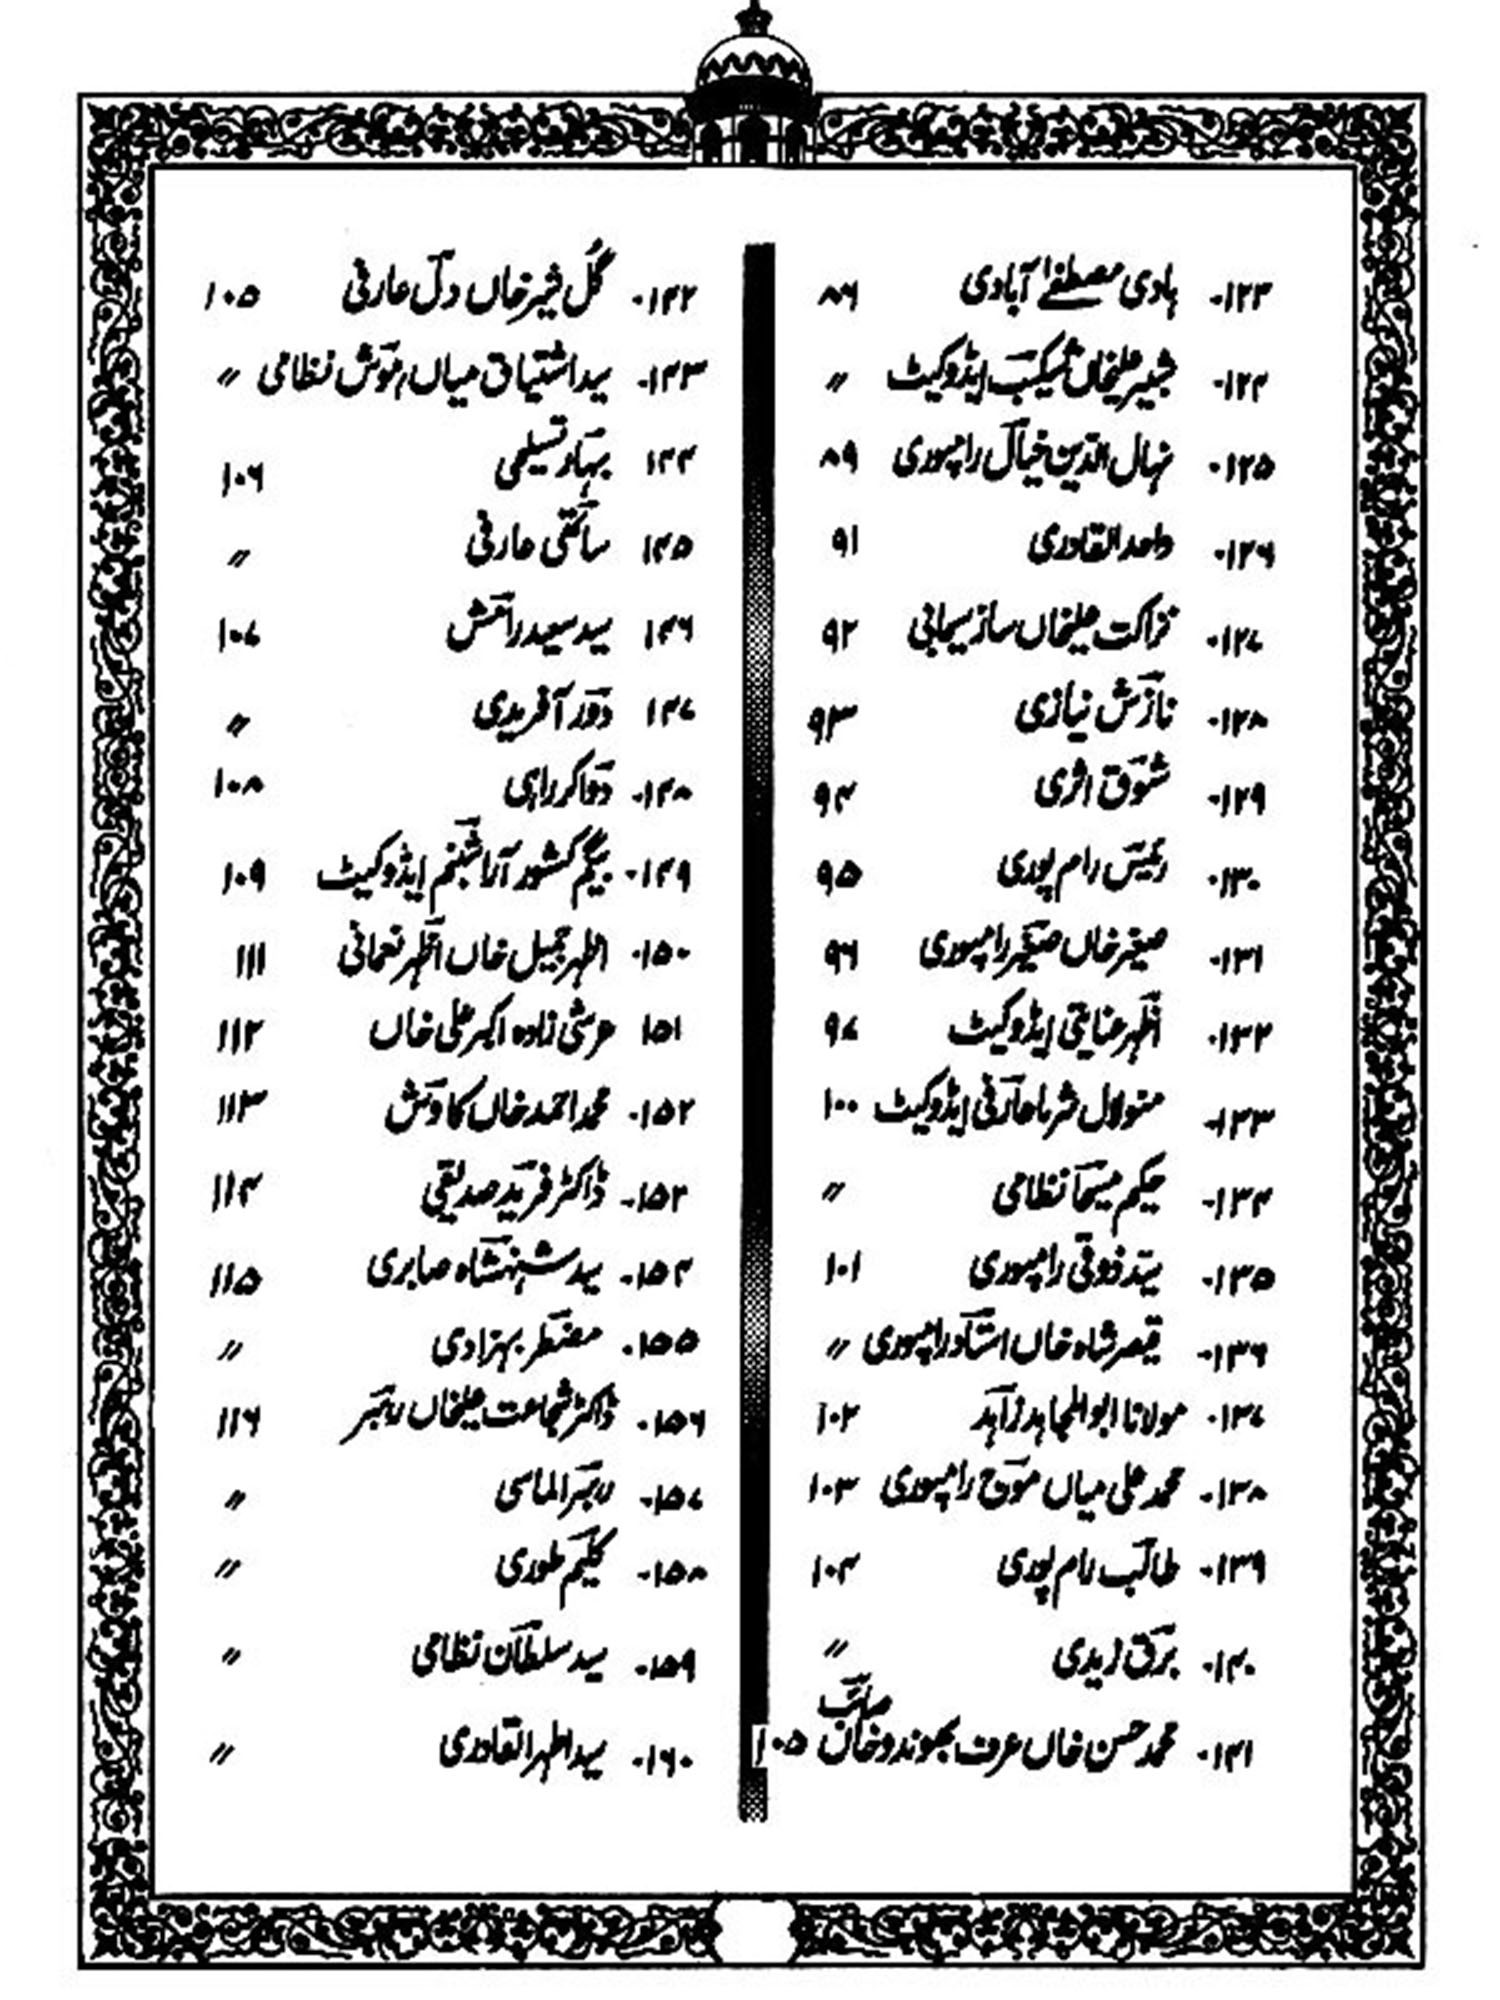 ۱۲۳۔ ہادی مصطفےٰ آبادی ۸۶
۱۲۴۔ شبیر علیخاں شکیب ایڈوکیٹ 〃
۱۲۵۔ نہال الدین خیال رامپوری ۸۹
۱۲۶۔ واحد القادری ۹۱
۱۲۷۔ نزاکت علیخاں ساز سبحانی ۹۲
۱۲۸۔ نازش نیازی ۹۳
۱۲۹۔ شوق اثری ۹۴
۱۳۰۔ رئیس رام پوری ۹۵
۱۳۱۔ صغیر خاں صغیر رامپوری ۹۶
۱۳۲۔ اظہر عنایتی ایڈوکیٹ ۹۷
۱۳۳۔ منولال شرما عارفی ایڈوکیٹ ۱۰۰
۱۳۴۔ حکیم مسیحا نظامی 〃
۱۳۵۔ سید ذوقی رامپوری ۱۰۱
۱۳۶۔ قیصر شاہ خاں استاد رامپوری 〃
۱۳۷۔ مولانا ابوالمجاہد زاہد ۱۰۲
۱۳۸۔ محمد علی میاں موج رامپوری ۱۰۳
۱۳۹۔ طالب رام پوری ۱۰۴
۱۴۰۔ برق زیدی 〃
۱۴۱۔ محمد حسن خاں عرف بھوندو خاں صائب ۱۰۵
۱۴۲۔ گل شیر خاں دل عارفی ۱۰۵
۱۴۳۔ سید اشتیاق میاں خوش نظامی 〃
۱۴۴ بہار تسلیمی ۱۰۶
۱۴۵ ساقی عارفی 〃
۱۴۶ سید سعید رامش ۱۰۷
۱۴۷ دور آفریدی 〃
۱۴۸۔ دواکر راہی ۱۰۸
۱۴۹۔ بیگم کشور آرا شبنم ایڈوکیٹ ۱۰۹
۱۵۰۔ اظہر جمیل خاں اظہر نعمانی ۱۱۱
۱۵۱ عرشی زادہ اکبر علی خاں ۱۱۲
۱۵۲۔ محمد احمد خاں کاوش ۱۱۳
۱۵۳۔ ڈاکٹر فرید صدیقی ۱۱۴
۱۵۴۔ سید شہنشاہ صابری ۱۱۵
۱۵۵۔ مضطر بہزادی 〃
۱۵۶۔ ڈاکٹر شجاعت علیخاں رہبر ۱۱۶
۱۵۷۔ رہبر الماسی 〃
۱۵۸۔ کلیم طوری 〃
۱۵۹۔ سید سلطان نظامی 〃
۱۶۰۔ سید اطہر القادری 〃